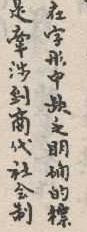 在字形中缺乏明确的标
是牵涉到商代社会制